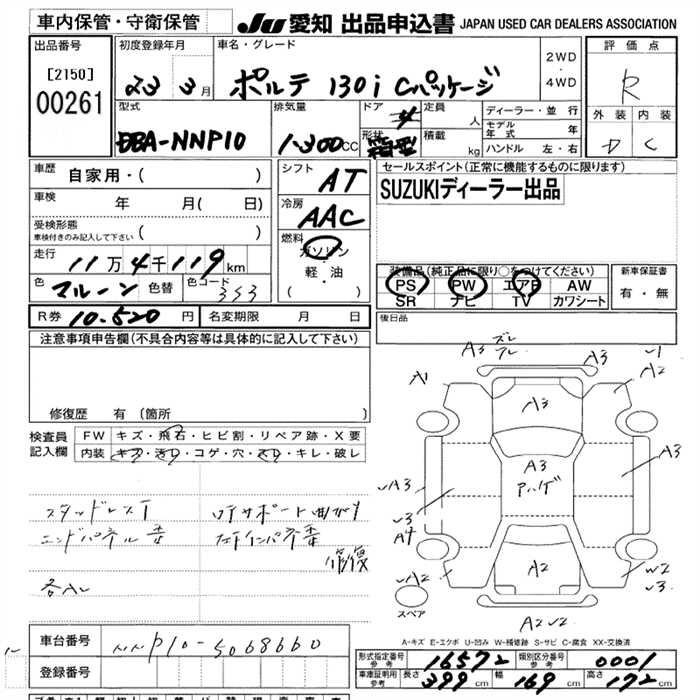 車内保管・守衛保管 JU 愛知 出品申込書 JAPAN USED CAR DEALERS ASSOCIATION
出品番号 初度登録年月 車名・グレード 2WD・4WD 評価点
[2150] 00261
23 3月 ポルテ 130i Cパッケージ R
型式 排気量 ドア 4 定員 人 ディーラー・並行 外装 内装
DBA-NNP10 1300CC 形状 箱型 積載 kg モデル年式 年 D C
ハンドル 左・右
車歴 自家用・( ) シフト AT セールスポイント(正常に機能するものに限ります)
SUZUKIディーラー出品
車検 年 月( 日) 冷房 AAC
受検形態
車検付きのみ記入して下さい ( )
燃料 ガソリン・軽・油 ( )
走行 11万4千119km
装備品(純正品に限り○をつけてください) 新車保証書
色 マルーン 色替 色コード 3S3
PS PW エアB AW 有・無
SR ナビ TV カワシート
R券 10,520円 名変期限 月 日 後日品
注意事項申告欄(不具合内容等は具体的に記入して下さい)
修復歴 有(箇所
検査員記入欄 FW キズ・飛石・ヒビ割・リペア跡・X要
内装 キズ・汚レ・コゲ・穴・スレ・キレ・破レ
スタッドレスT
エンドパネル歪
左インパネ歪
修復
A3 ズレ
A3
√1
A1
A2
A3
A3
A3
√A3
√3
A4
√A2
A2
W2
√3
A2√2
スペア
A-キズ E-エクボ U-凹み W-補修跡 S-サビ C-腐食 XX-交換済
車台番号 NNP10-5068660
登録番号
形式指定番号 参考 16572 類別区分番号 参考 0001
車庫証明用 参考 長さ 399cm 幅 169cm 高さ 172cm